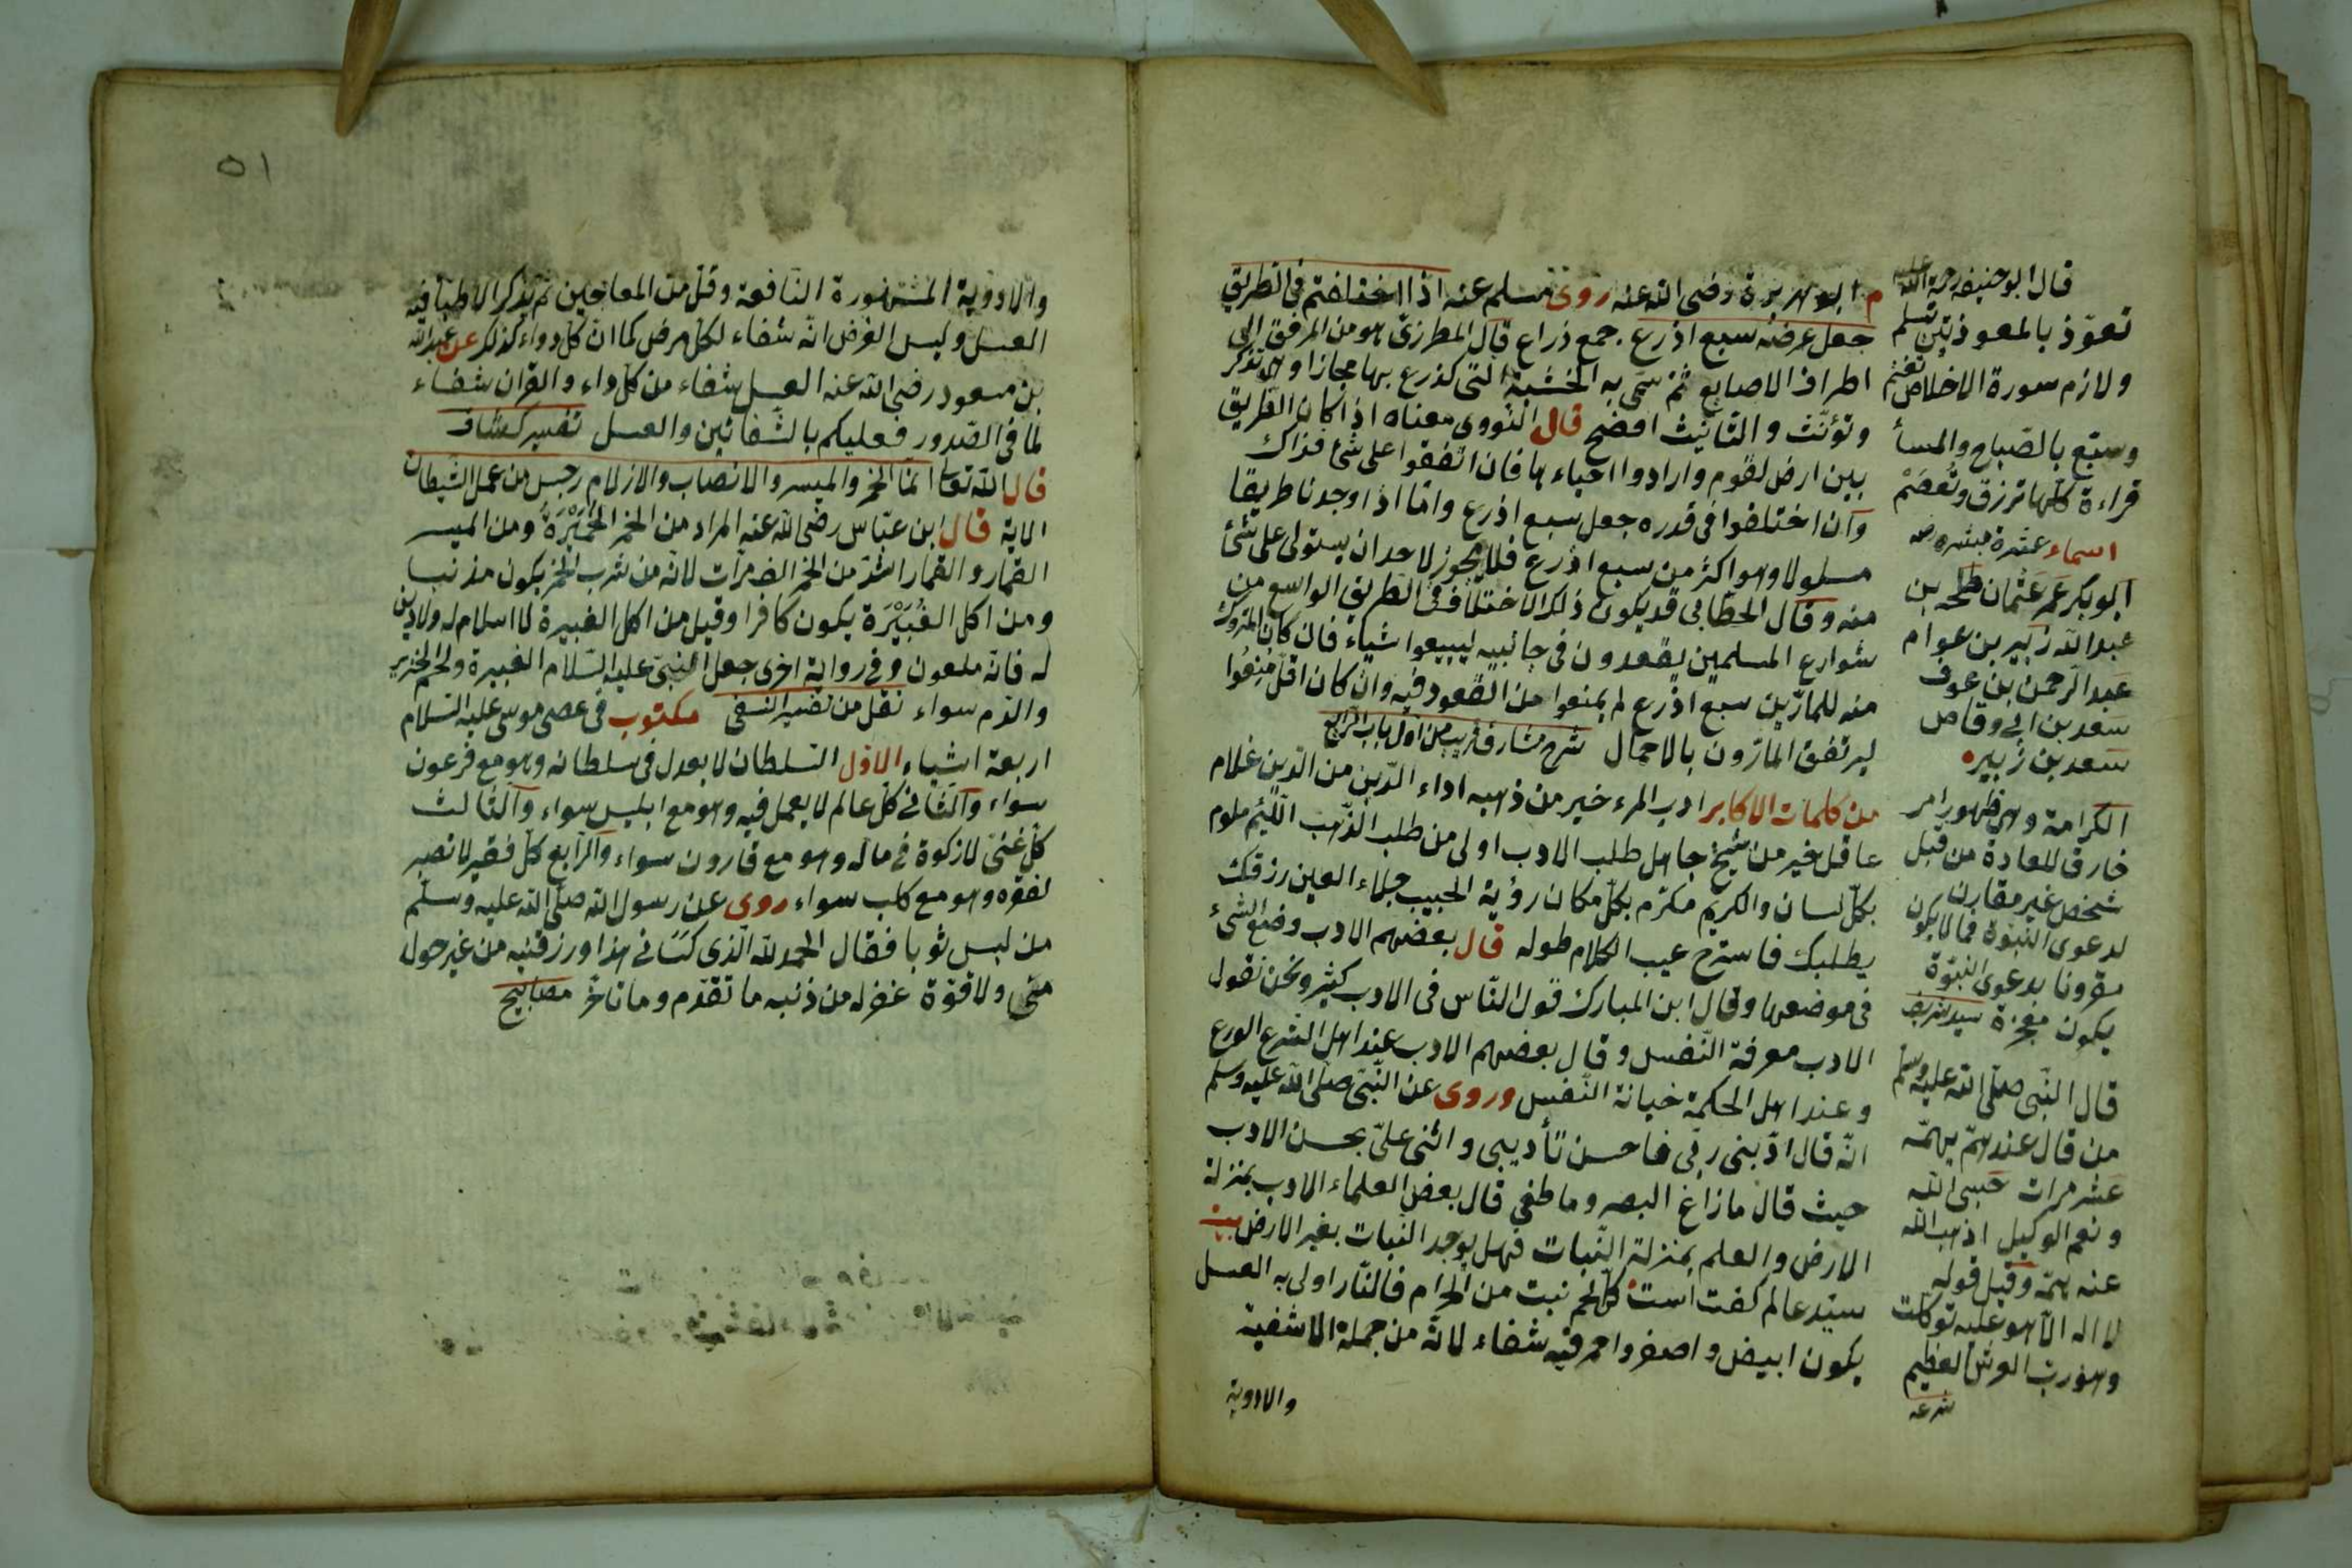 م ابو هريرة رضى الله عنه روى مسلم عنه اذا اختلفتم فى الطريق
جعل عرضه سبع اذرع . جمع ذراع قال المطرزى هو من المرفق الى
اطراف الاصابع ثم سمى به الخشبة التى يذرع بها مجازا وهى تذكر
وتؤنث والتانيث افصح قال النووى معناه اذا كان الطريق
بين ارض لقوم وارادوا احياءها فان اتفقوا على شئ فذاك
وان اختلفوا فى قدره جعل سبع اذرع واما اذا وجدنا طريقا
مسلوكا وهو اكثر من سبع اذرع فلا يجوز لاحد ان يستولى على شئ
منه وقال الخطابى قد يكون ذلك الاختلاف فى الطريق الواسع من
شوارع المسلمين يقعدون فى جانبيه ليبيعوا شياء فان كان المتروك
منه للمارين سبع اذرع لم يمنعوا من القعود فيه وان كان اقل منعوا
ليرتفق المارون بالاحمال شرح مشارق قريب من اول باب الرابع
من كلمات الاكابر ادب المرء خير من ذهبه اداء الدين من الدين غلام
عاقل خير من شيخ جاهل طلب الادب اولى من طلب الذهب اللئيم ملوم
بكل لسان والكريم مكرم بكل مكان رؤية الحبيب جلاء العين رزقك
يطلبك فاسترح عيب الكلام طوله قال بعضهم الادب وضع الشئ
فى موضعها وقال ابن المبارك قول الناس فى الادب كثير ونحن نقول
الادب معرفة النفس وقال بعضهم الادب عند اهل الشرع الورع
وعند اهل الحكمة خيانة النفس وروى عن النبى صلى الله عليه وسلم
انه قال ادبنى ربى فاحسن تأديبى واثنى على بحسن الادب
حيث قال ما زاغ البصر وما طغى قال بعض العلماء الادب بمنزلة
الارض والعلم بمنزلة النبات فهل يوجد النبات بغير الارض بيت
سيد عالم كفت است كل لحم نبت من الحرام فالنار اولى به العسل
يكون ابيض واصفر واحمر فيه شفاء لانه من جملة الاشفية
والادوية
قال ابو حنيفه رحمة الله عليه
تعوذ بالمعوذتين تسلم
ولازم سورة الاخلاص تغنم
وسبح بالصباح والمسأ
قراءة كلها ترزق وتعصم
اسماء عشرة مبشره
ابو بكر عمر عثمان طلحه بن
عبد الله زبير بن عوام
عبد الرحمن بن عوف
سعد بن ابى وقاص
سعد بن زبير
الكرامة وهى ظهور امر
خارق للعادة من قبل
شخص غير مقارن
لدعوى النبوة فما لا يكون
مقرونا بدعوى النبوة
يكون معجزة سيد شريف
قال النبى صلى الله عليه وسلم
من قال عند هم يهمه
عشر مرات حسبى الله
ونعم الوكيل اذهب الله
عنه همه وقيل قوله
لا اله الا هو عليه توكلت
وهو رب العرش العظيم
شرعه
٥١
والادوية المشهورة النافعة وقل من المعاجين لم يذكر الاطبا فيه
العسل وليس الغرض انه شفاء لكل مرض كما ان كل دواء كذلك عن عبد الله
بن مسعود رضى الله عنه العسل شفاء من كل داء والقران شفاء
لما فى الصدور فعليكم بالشفائين والعسل تفسير كشاف
قال الله تعالى انما الخمر والميسر والانصاب والازلام رجس من عمل الشيطان
الاية قال ابن عباس رضى الله عنه المراد من الخمر الخميرة ومن الميسر
القمار والقمار اشد من الخمر الف مرات لانه من شرب الخمر يكون مذنبا
ومن اكل الغبيرة يكون كافرا وقيل من اكل الغبيرة لا اسلام له ولا دين
له فانه ملعون وفى رواية اخرى جعل النبى عليه السلام الغبيرة ولحم الخنزير
والدم سواء نقل من تفسير النسفى مكتوب فى عصى موسى عليه السلام
اربعة اشياء الاول السلطان لا يعدل فى سلطانه وهو مع فرعون
سواء والثانى كل عالم لا يعمل فيه وهو مع ابليس سواء والثالث
كل غنى لا زكوة فى ماله وهو مع قارون سواء والرابع كل فقير لا تصبر
لفقره وهو مع كلب سواء روى عن رسول الله صلى الله عليه وسلم
من لبس ثوبا فقال الحمد لله الذى كسانى هذا ورزقنيه من غير حول
منى ولا قوة غفر له من ذنبه ما تقدم وما تاخر مصابيح